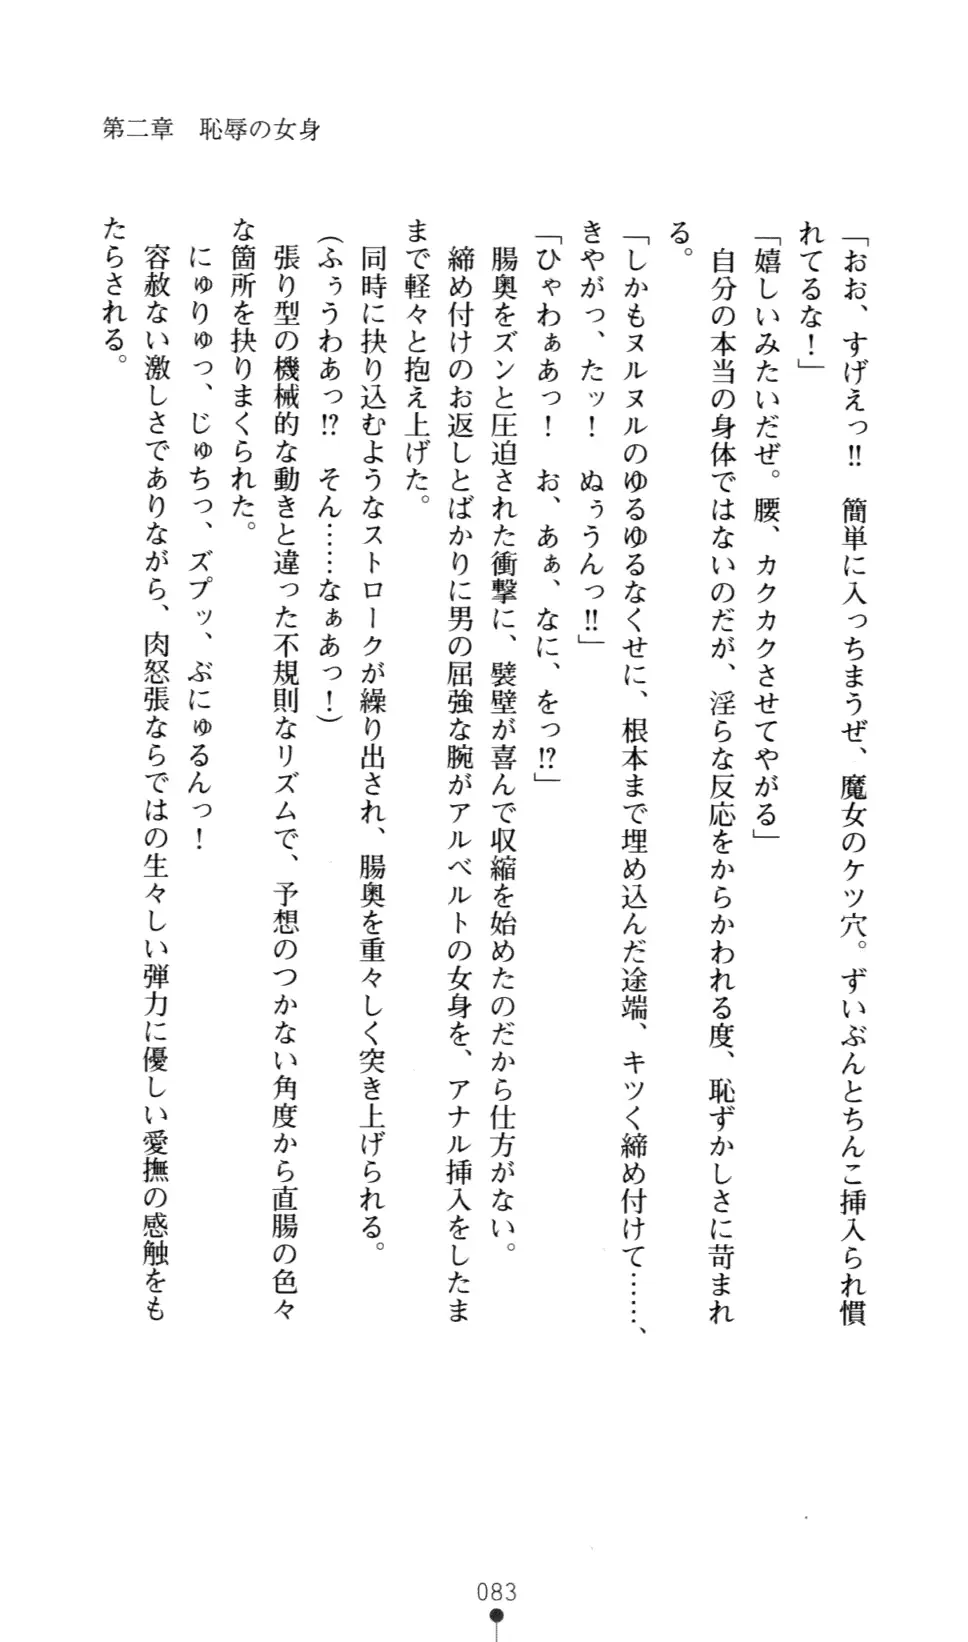 第二章　恥辱の女身
「おお、すげえっ!!　簡単に入っちまうぜ、魔女のケツ穴。ずいぶんとちんこ挿入られ慣
れてるな！」
「嬉しいみたいだぜ。腰、カクカクさせてやがる」
　自分の本当の身体ではないのだが、淫らな反応をからかわれる度、恥ずかしさに苛まれ
る。
「しかもヌルヌルのゆるゆるなくせに、根本まで埋め込んだ途端、キツく締め付けて……、
きやがっ、たッ！　ぬぅうんっ!!」
「ひゃわぁあっ！　お、あぁ、なに、をっ!?」
　腸奥をズンと圧迫された衝撃に、襞壁が喜んで収縮を始めたのだから仕方がない。
　締め付けのお返しとばかりに男の屈強な腕がアルベルトの女身を、アナル挿入をしたま
まで軽々と抱え上げた。
　同時に抉り込むようなストロークが繰り出され、腸奥を重々しく突き上げられる。
（ふぅうわあっ!?　そん……なぁあっ！）
　張り型の機械的な動きと違った不規則なリズムで、予想のつかない角度から直腸の色々
な箇所を抉りまくられた。
　にゅりゅっ、じゅちっ、ズプッ、ぶにゅるんっ！
　容赦ない激しさでありながら、肉怒張ならではの生々しい弾力に優しい愛撫の感触をも
たらされる。
083